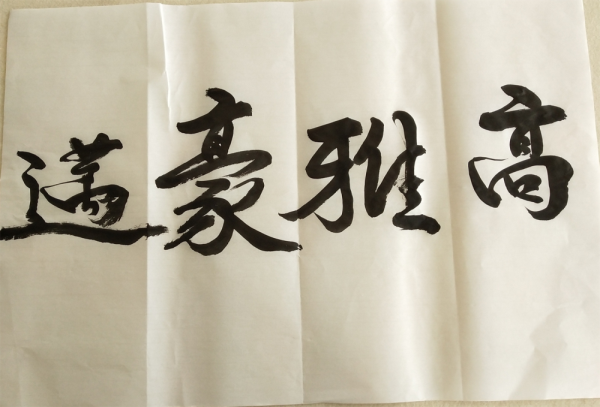 高雅豪邁